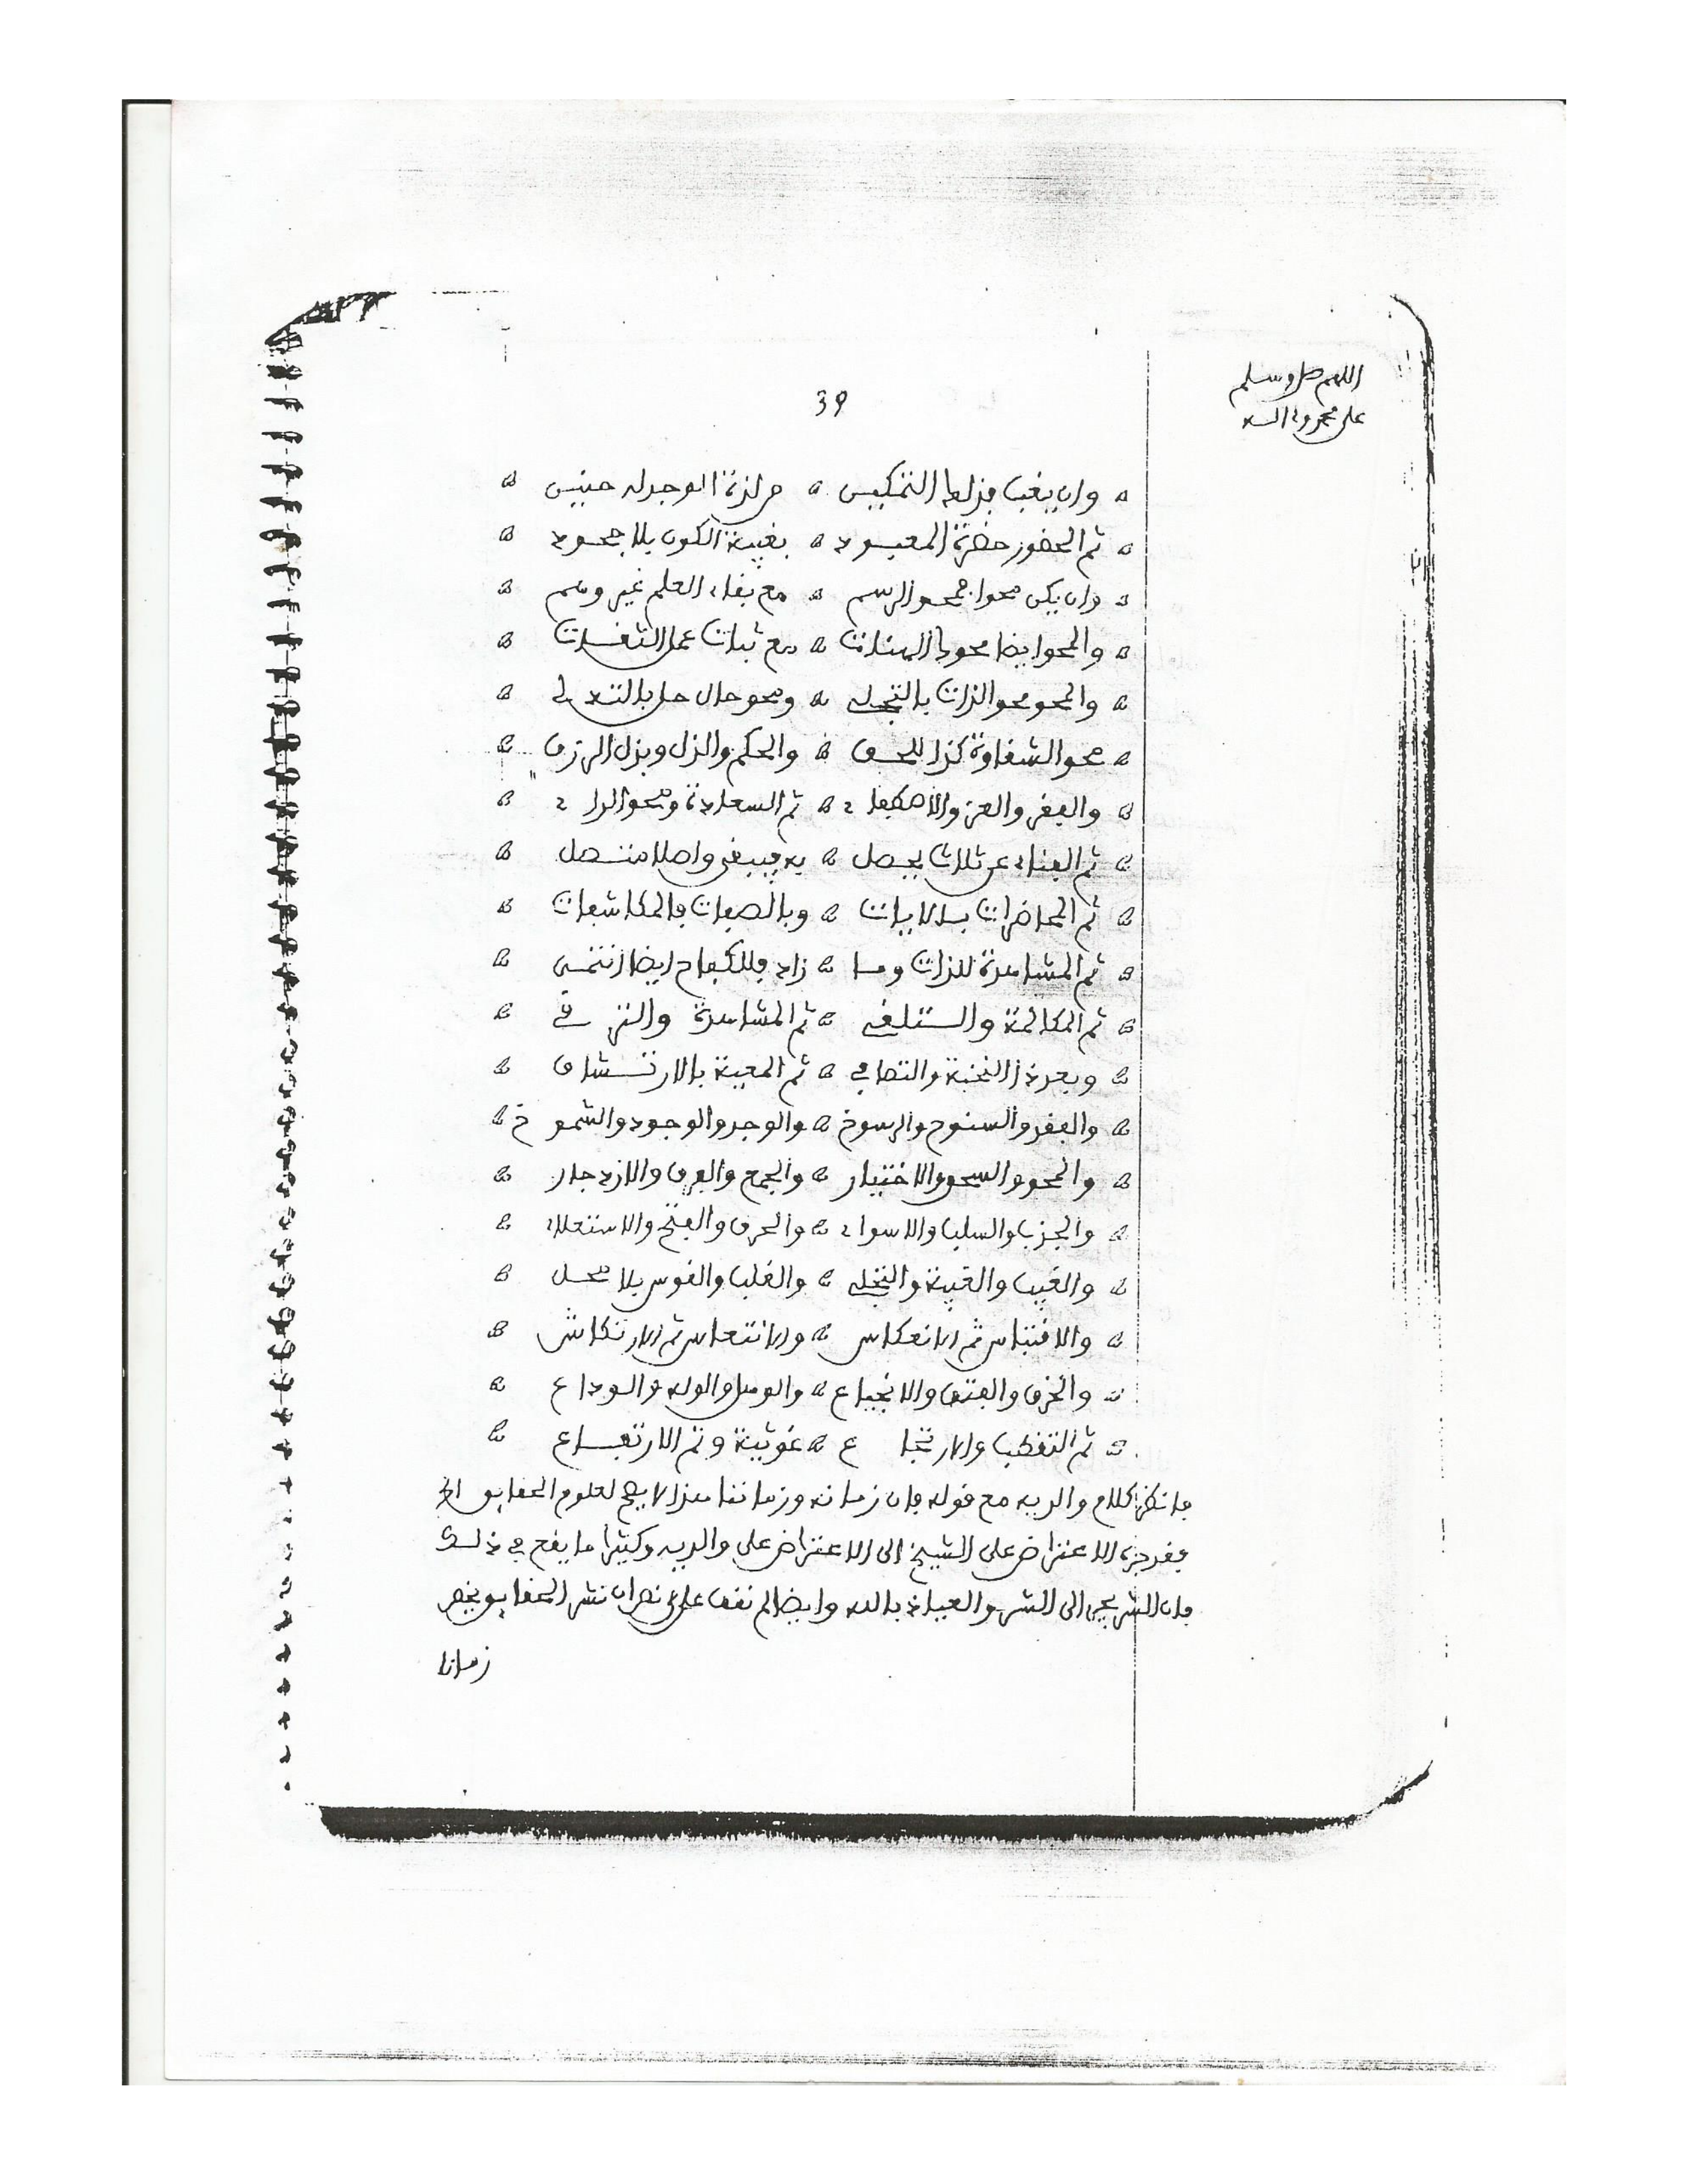 اللهم صل وسلم
على محمد وءاله
39
وان يغب فذلها التمكيس من لذة الوجد له حنيس
ثم الحضور حضرة المعبود بغيبة الكون بلا جحود
وان يكن محوا فمحو الرسم مع بقاء العلم غير وهم
والمحو ايضا محو بالهنات مع ثبات عمل الثقات
والمحو محو الذات بالتجلي ومحو حال حل بالتدلي
محو الشقاوة كذا للحق والحكم والذل وبذل الرزق
والفقر والعز والاصطفاء ثم السعادة ومحو الداء
ثم الفناء عن ثلاث يحصل به فيبقى واصلا متصل
ثم المحاضرات بالايات وبالصفات فالمكاشفات
ثم المشاهدة للذات وما زاد فللكفاح ايضا انتمى
ثم المكالمة والتلقي ثم المشاهدة والترقي
وبعد ذا النخبة والتصافي ثم المعية بالارتشاف
والفقد والسنوح والرسوخ والوجد والوجود والشموخ
والمحو والسحق والاختيار والجمع والفرق والازدجار
والجذب والسلب والاسواء والحرق والفتح والاستعلاء
والغيب والغيبة والتجلي والقلب والقوس بلا محل
والاقتباس ثم الانعكاس والانتعاش ثم الارتكاش
والخرق والفتق والانجماع والوصل والوله والوداع
ثم التقطب والارتجاع غوثية وتم الارتفاع
فانظر كلام والديه مع قوله فان زمانه وزماننا هذا لا يصح لعلوم الحقايق الخ
فقد جره الاعتراض على الشيخ الى الاعتراض على والديه وكثيرا ما يقع في ذلك
فان الشر يجر الى الشر والعياذ بالله وايضا لم نقف على نص ان نشر الحقايق يخص
زمانا